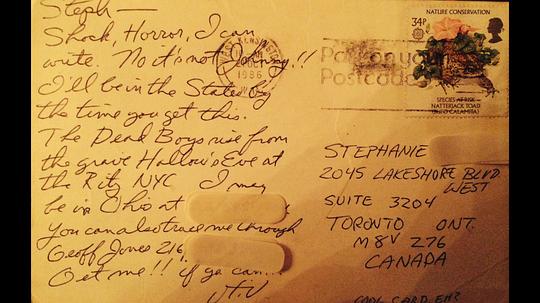 Steph—
Shock, Horror, I can
write. No it's not Johnny!!
I'll be in the States by
the time you get this.
The Dead Boys rise from
the grave Hallow's Eve at
the Ritz NYC I may
be in Ohio at
you can also trace me through
Geoff Jones 216
Get me!! if ya can...
WEST KENSINGTON
OCT
1986
Postcode
34P
NATURE CONSERVATION
SPECIES AT RISK
NATTERJACK TOAD
(BUFO CALAMITA)
STEPHANIE
2045 LAKESHORE BLVD
WEST
SUITE 3204
TORONTO ONT.
M8V 2Z6
CANADA
COOL CARD EH?